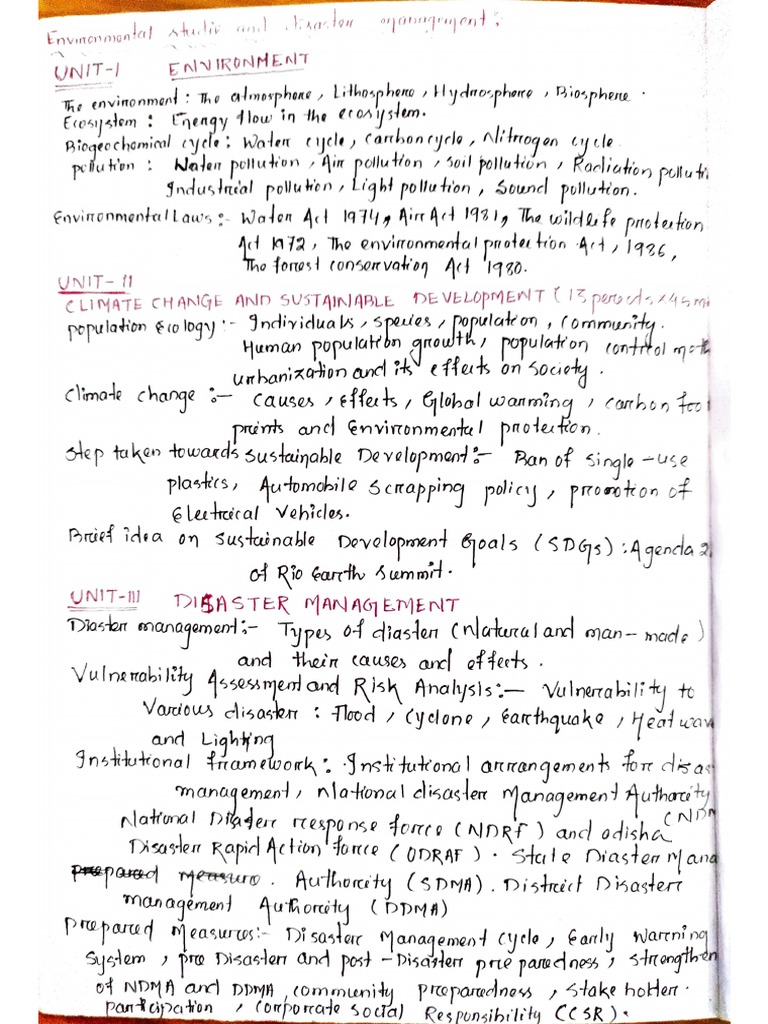 Environmental studie and disaster management:
UNIT-I ENVIRONMENT
The environment: The atmosphere, Lithosphere, Hydrosphere, Biosphere.
Ecosystem: Energy flow in the ecosystem.
Biogeochemical cycle: Water cycle, Carbon cycle, Nitrogen cycle
pollution: Water pollution, Air pollution, soil pollution, Radiation polluti
Industrial pollution, Light pollution, Sound pollution.
Environmental Laws:- Water Act 1974, Air Act 1981, The wildlife protection
Act 1972, The environmental protection Act, 1986,
The forrest conservation Act 1980.
UNIT-II
CLIMATE CHANGE AND SUSTAINABLE DEVELOPMENT (13 periods x 45 mi
population Ecology:- Individuals, species, population, community.
Human population growth, population control meth
urbanization and its effects on society.
Climate change:- causes, effects, Global warming, carbon foot
prints and Environmental protection.
Step taken towards Sustainable Development:- Ban of single-use
plastics, Automobile Scrapping policy, promotion of
Electrical Vehicles.
Brief idea on Sustainable Development Goals (SDGs): Agenda 2
of Rio Earth Summit.
UNIT-III DISASTER MANAGEMENT
Diaster management:- Types of diaster (Natural and man-made)
and their causes and effects.
Vulnerability Assessment and Risk Analysis:- Vulnerability to
Various disaster: flood, cyclone, Earthquake, Heat wav
and Lighting
Institutional framework: Institutional arrangements for disas
management, National disaster Management Authority
(NDM
National Diaster response force (NDRF) and odisha
Disaster Rapid Action force (ODRAF). State Diaster Mana
prepared measure. Authority (SDMA). District Disaster
management Authority (DDMA)
Prepared Measures:- Disaster Management cycle, Early Warning
System, pre Disaster and post-Disaster preparedness, strengthen
of NDMA and DDMA community preparedness, stakeholder.
participation, corporate social Responsibility (CSR).